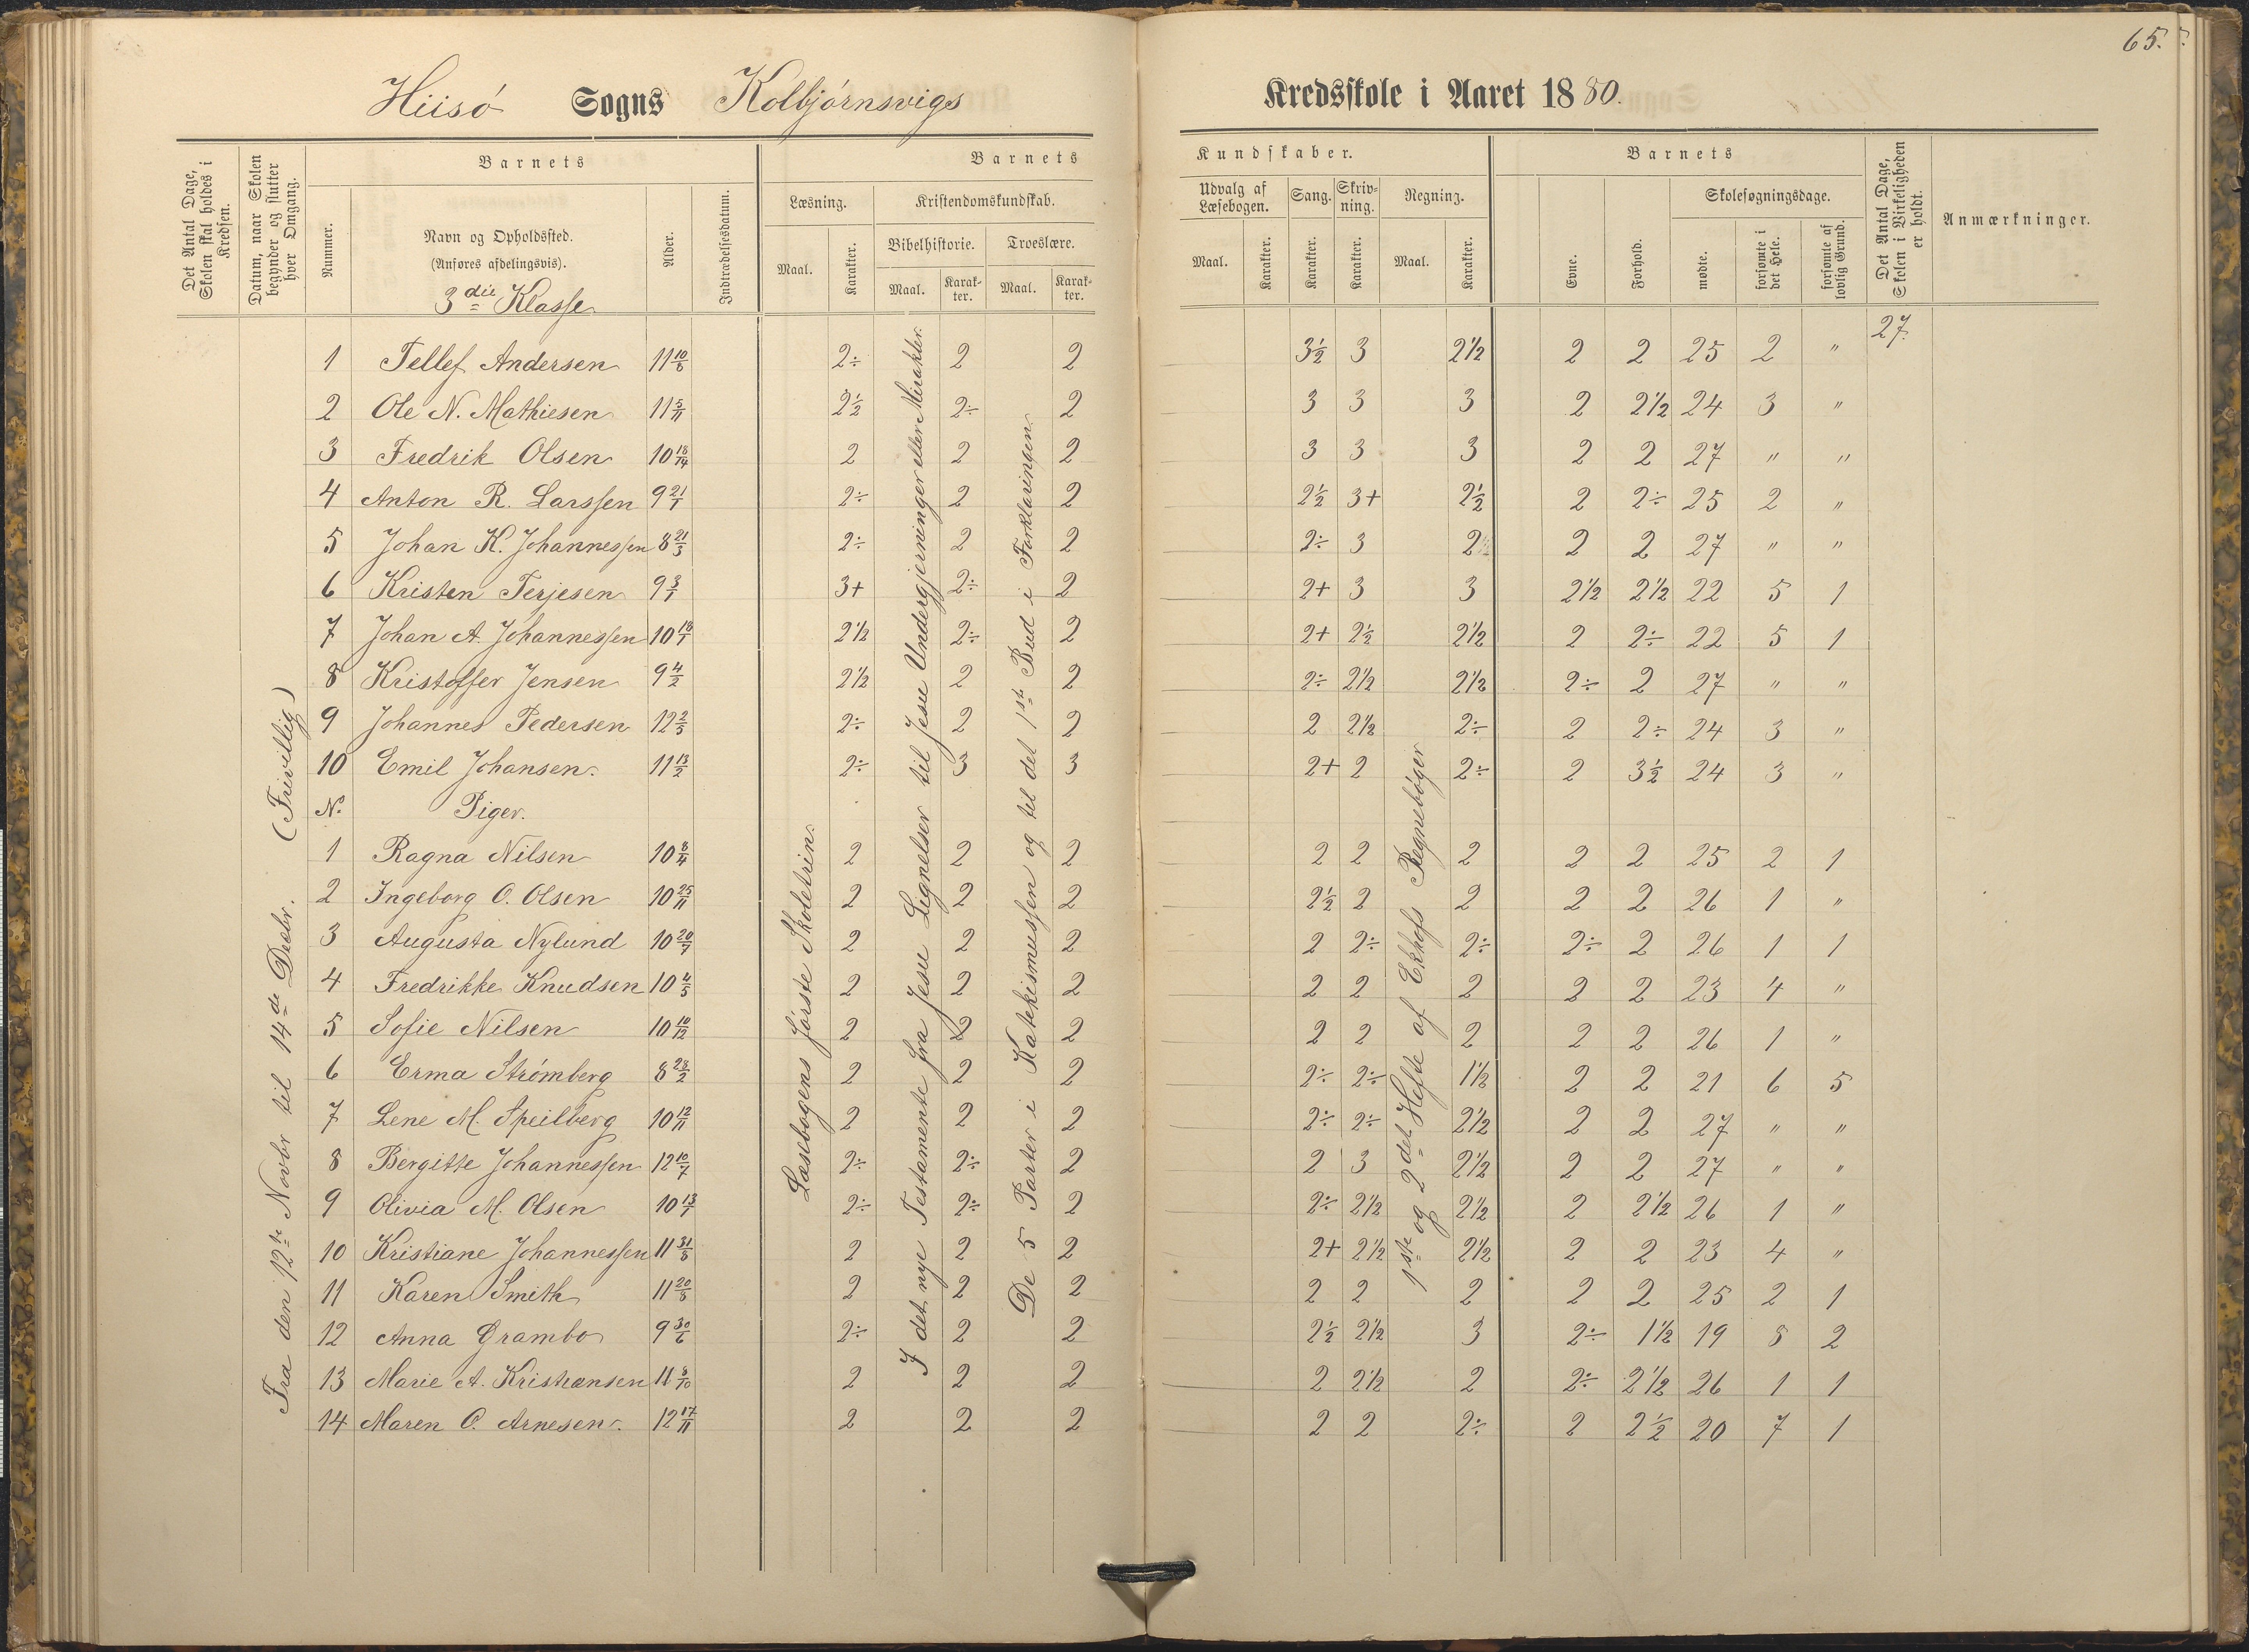 65.
Hiisó Sogns Kolbjórnsvigs Kredsskole i Aaret 1880.
Det Antal Dage, Skolen skal holdes i Kredsen.
Datum, naar Skolen begynder og slutter hver Omgang.
Barnets
Nummer.
Navn og Opholdssted.
(Anføres afdelingsvis).
3die Klasse
Alder.
Indtrædelsesdatum.
Barnets Kundskaber.
Læsning.
Maal. Karakter.
Kristendomskundskab.
Bibelhistorie. Troeslære.
Maal. Karakter. Maal. Karakter.
Udvalg af Læsebogen.
Maal. Karakter.
Sang. Karakter.
Skrivning. Karakter.
Regning.
Maal. Karakter.
Barnets
Evne. Forhold.
Skolesøgningsdage.
mødte. forsømte i det Hele. forsømte af lovlig Grund.
Det Antal Dage, Skolen i Virkeligheden er holdt.
Anmærkninger.
Fra den 12te Novbr til 14de Decbr. (Frivillig)
Læsebogens første Skoletrin.
I det nye Testamente fra Jesu Lignelser til Jesu Undergjerninger eller Mirakler.
De 5 Parter i Katekismussen og til det 1ste Bud i Forklaringen.
1ste og 2det Hefte af Ekhofs Regnebøger
27.
1 Tellef Andersen 11 10/8 2÷ 2 2 3½ 3 2½ 2 2 25 2 "
2 Ole N. Mathiesen 11 5/11 2½ 2÷ 2 3 3 3 2 2½ 24 3 "
3 Fredrik Olsen 10 18/14 2 2 2 3 3 3 2 2 27 " "
4 Anton R. Larssen 9 21/1 2÷ 2 2 2½ 3+ 2½ 2 2÷ 25 2 "
5 Johan K. Johannessen 8 21/3 2÷ 2 2 2÷ 3 2 2 2 27 " "
6 Kristen Terjesen 9 3/1 3+ 2÷ 2 2+ 3 3 2½ 2½ 22 5 1
7 Johan A. Johannessen 10 18/1 2½ 2÷ 2 2+ 2½ 2½ 2 2÷ 22 5 1
8 Kristoffer Jensen 9 4/2 2½ 2 2 2÷ 2½ 2½ 2÷ 2 27 " "
9 Johannes Pedersen 12 2/5 2÷ 2 2 2 2½ 2÷ 2 2÷ 24 3 "
10 Emil Johansen. 11 13/2 2÷ 3 3 2+ 2 2÷ 2 3½ 24 3 "
N. Piger.
1 Ragna Nilsen 10 8/4 2 2 2 2 2 2 2 2 25 2 1
2 Ingeborg O. Olsen 10 25/11 2 2 2 2½ 2 2 2 2 26 1 "
3 Augusta Nylund 10 20/7 2 2 2 2 2÷ 2÷ 2÷ 2 26 1 1
4 Fredrikke Knudsen 10 4/5 2 2 2 2 2 2 2 2 23 4 "
5 Sofie Nilsen 10 10/12 2 2 2 2 2 2 2 2 26 1 "
6 Erma Strömberg 8 28/2 2 2 2 2÷ 2÷ 1½ 2 2 21 6 5
7 Lene M. Speilberg 10 12/11 2 2 2 2÷ 2÷ 2½ 2 2 27 " "
8 Bergitte Johannessen 12 10/7 2÷ 2÷ 2 2 3 2½ 2 2 27 " "
9 Olivia M. Olsen 10 13/1 2÷ 2÷ 2 2÷ 2½ 2½ 2 2½ 26 1 "
10 Kristiane Johannessen 11 31/8 2 2 2 2+ 2½ 2½ 2 2 23 4 "
11 Karen Smith 11 20/8 2 2 2 2 2 2 2 2 25 2 1
12 Anna Grambo 9 30/6 2÷ 2 2 2½ 2½ 3 2÷ 1½ 19 8 2
13 Marie A. Kristiansen 11 8/10 2 2 2 2 2½ 2 2÷ 2½ 26 1 1
14 Maren O. Arnesen. 12 17/11 2 2 2 2 2 2÷ 2 2½ 20 7 1